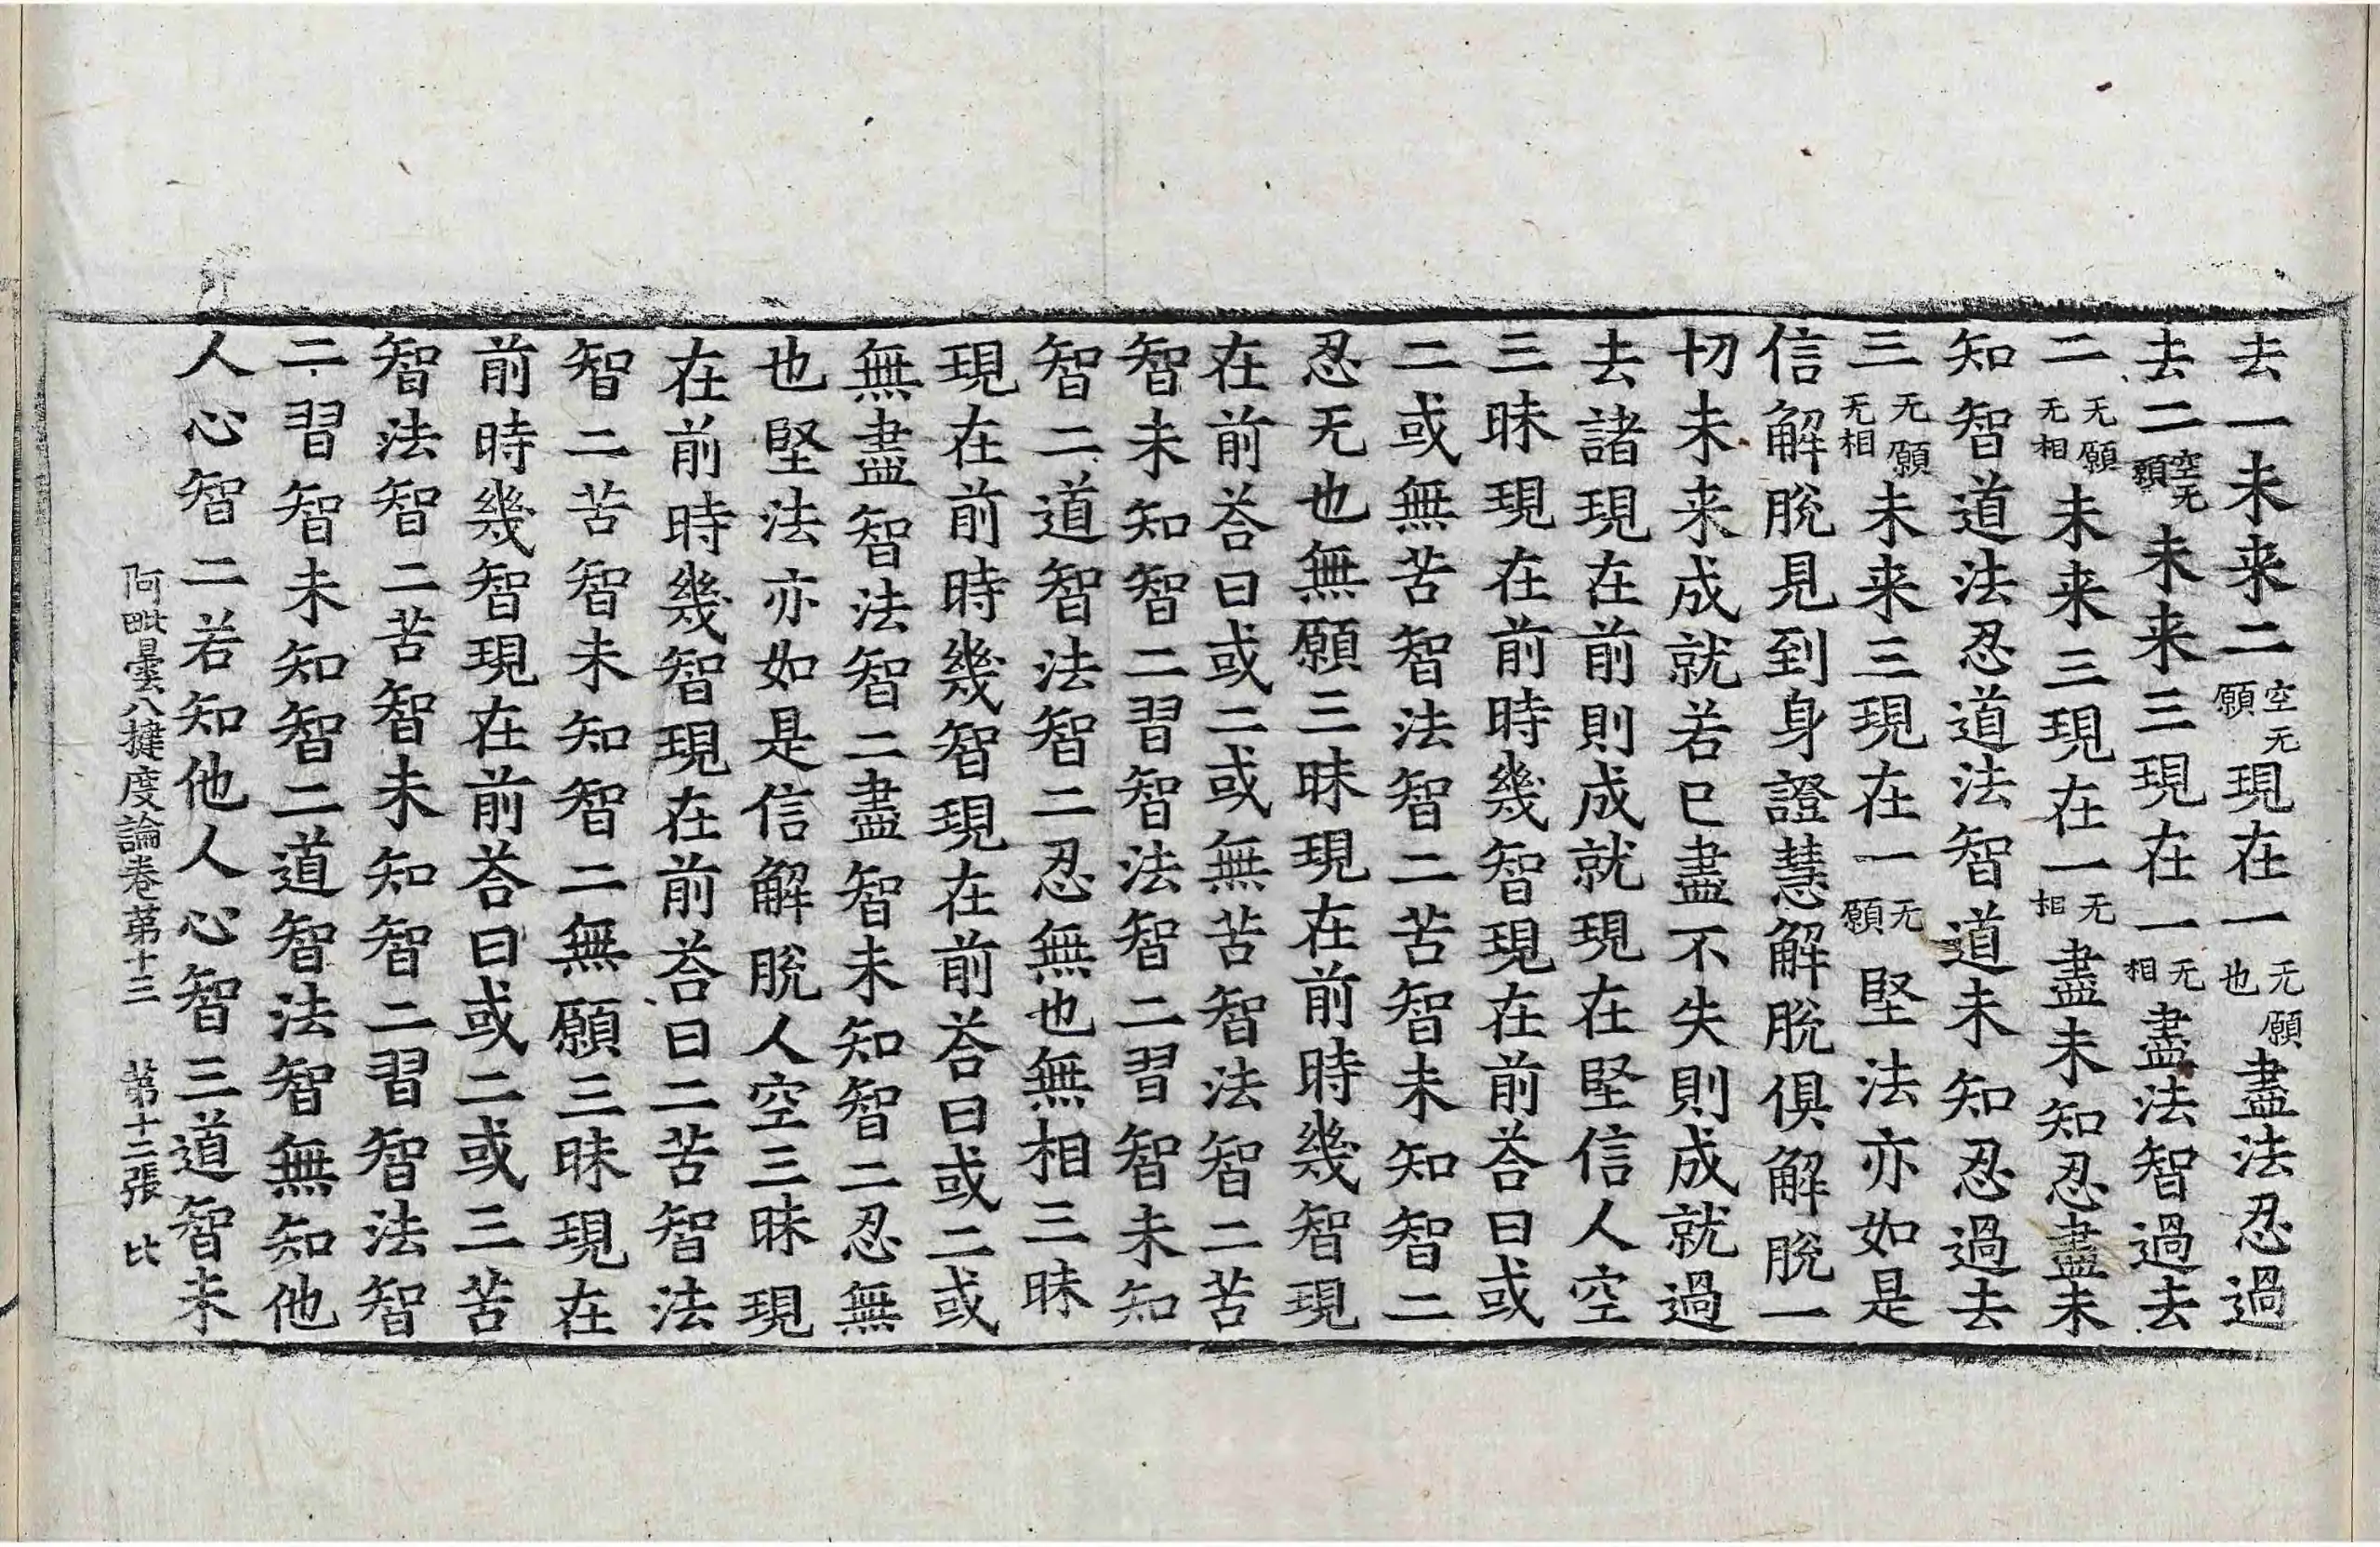 去一未来二空无願現在一无願也盡法忍過
去二空无願未来三現在一无相盡法智過去
二无願无相未来三現在一无相盡未知忍盡未
知智道法忍道法智道未知忍過去
三无願无相未来三現在一无願堅法亦如是
信解脫見到身證慧解脫俱解脫一
切未来成就若已盡不失則成就過
去諸現在前則成就現在堅信人空
三昧現在前時幾智現在前荅曰或
二或無苦智法智二苦智未知智二
忍无也無願三昧現在前時幾智現
在前荅曰或二或無苦智法智二苦
智未知智二習智法智二習智未知
智二道智法智二忍無也無相三昧
現在前時幾智現在前荅曰或二或
無盡智法智二盡智未知智二忍無
也堅法亦如是信解脫人空三昧現
在前時幾智現在前荅曰二苦智法
智二苦智未知智二無願三昧現在
前時幾智現在前荅曰或二或三苦
智法智二苦智未知智二習智法智
二習智未知智二道智法智無知他
人心智二若知他人心智三道智未
阿毗曇八揵度論卷第十三　第十二張　比